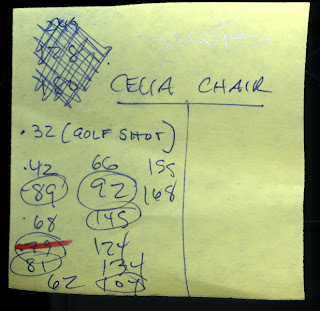 CELIA CHAIR
.32 (GOLF SHOT)
.42 66 155
89 92 168
.68 145
79 124
81 134
62 104